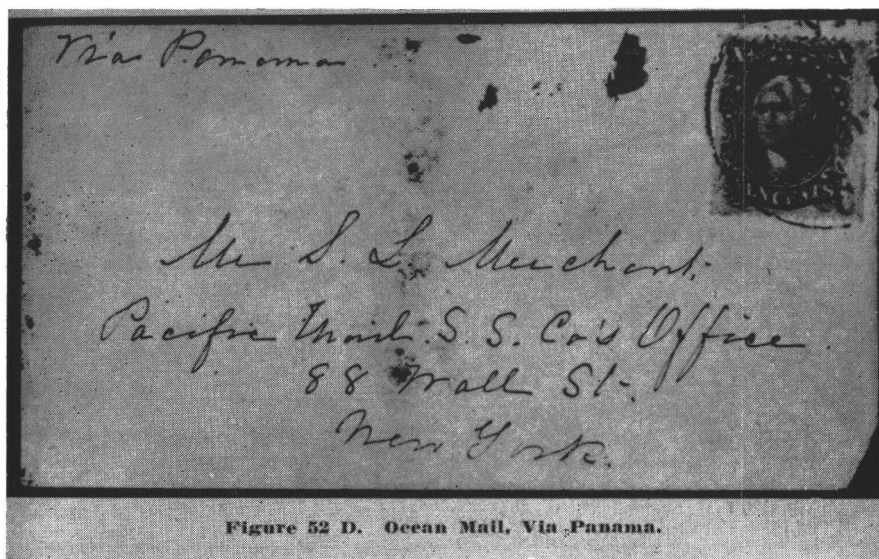 Via Panama
Mr S. L. Merchant.
Pacific Mail S. S. Co's Office
88 Wall St.
New York.
Figure 52 D. Ocean Mail, Via Panama.